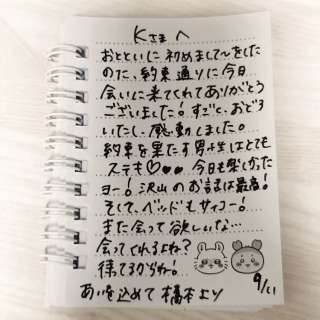 Kさまへ
おとといに初めまして〜をした
のに、約束通りに今日
会いに来てくれてありがとう
ございました!すごく、おどろ
いたし、感動しました。
約束を果たす男性はとても
ステキ♡♥♥ 今日も楽しかった
ヨー!沢山のお話は最高!
そして、ベッドもサイコー!
また会って欲しいな…
会ってくれるよね?
待ってるからね!
あいを込めて 橋本より
9/11